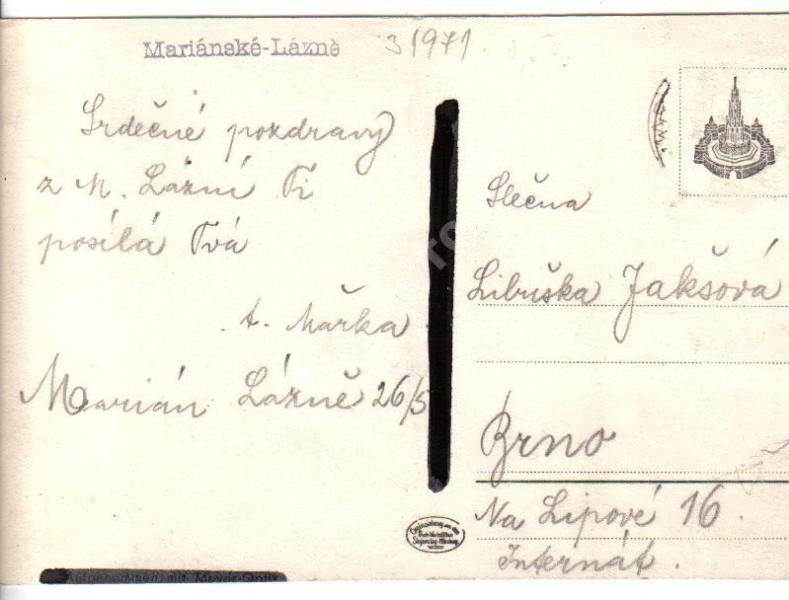 Mariánské-Lázně
31971
Srdečné pozdravy
z M. Lázní Ti
posílá Tvá
t. Mařka
Marián Lázně 26/5
Slečna
Libuška Jakšová
Brno
Na Lipové 16.
Internát.
Aufgenommen mit Meyer-Optik